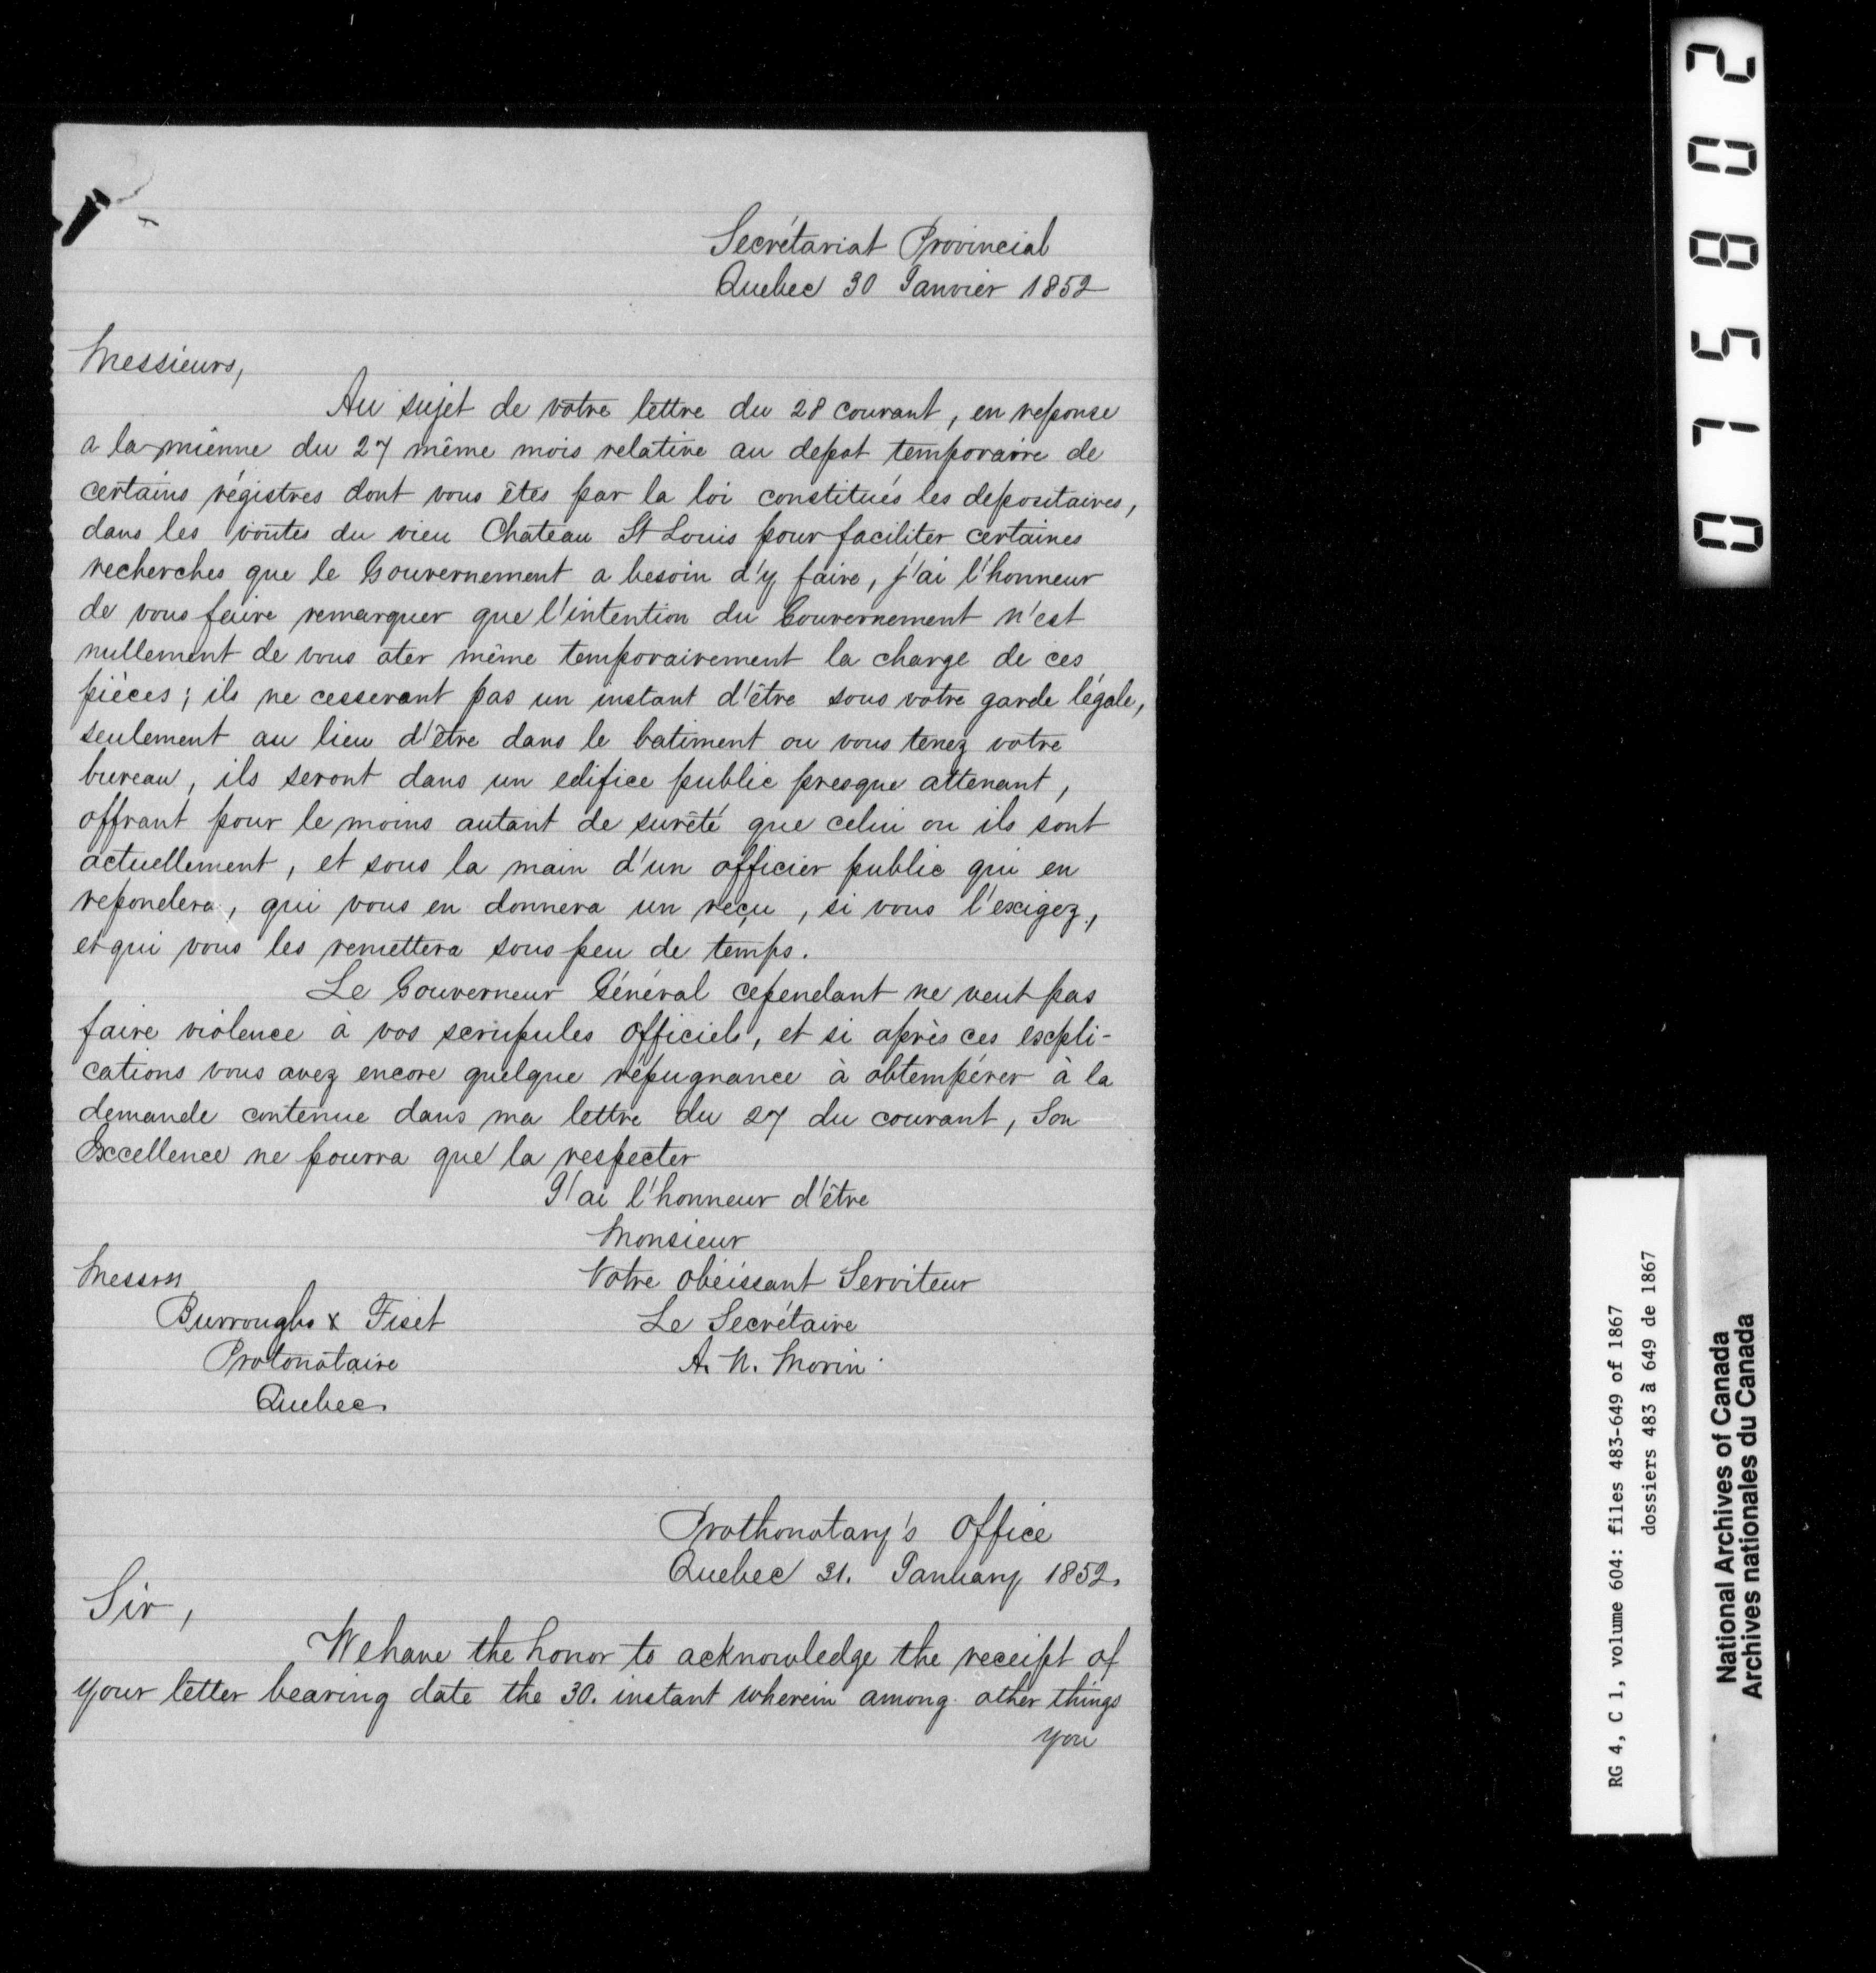 Secrétariat Provincial
Quebec 30 Janvier 1852
Messieurs,
Au sujet de votre lettre du 28 courant, en reponse
a la mienne du 27 même mois relative au depot temporaire de
certains régistres dont vous êtes par la loi constitués les depositaires,
dans les voûtes du vieu Chateau St Louis pour faciliter certaines
recherches que le Gouvernement a besoin d'y faire, j'ai l'honneur
de vous faire remarquer que l'intention du Gouvernement n'est
nullement de vous oter même temporairement la charge de ces
pièces; ils ne cesseront pas un instant d'être sous votre garde légale,
seulement au lieu d'être dans le batiment ou vous tenez votre
bureau, ils seront dans un edifice public presque attenant,
offrant pour le moins autant de sureté que celui ou ils sont
actuellement, et sous la main d'un officier public qui en
repondera, qui vous en donnera un reçu, si vous l'exigez,
et qui vous les remettera sous peu de temps.
Le Gouverneur Général cependant ne veut pas
faire violence à vos scrupules officiels, et si après ces expli-
cations vous avez encore quelque répugnance à obtempérer à la
demande contenue dans ma lettre du 27 du courant, Son
Excellence ne pourra que la respecter
J'ai l'honneur d'être
Monsieur
Votre obéissant Serviteur
Le Secrétaire
A. N. Morin
Messrs
Burroughs & Fiset
Protonotaire
Quebec.
Prothonotary's Office
Quebec 31. January 1852.
Sir,
We have the honor to acknowledge the receipt of
your letter bearing date the 30. instant wherein among other things
you
01582
RG 4, C 1, volume 604: files 483-649 of 1867
dossiers 483 à 649 de 1867
National Archives of Canada
Archives nationales du Canada